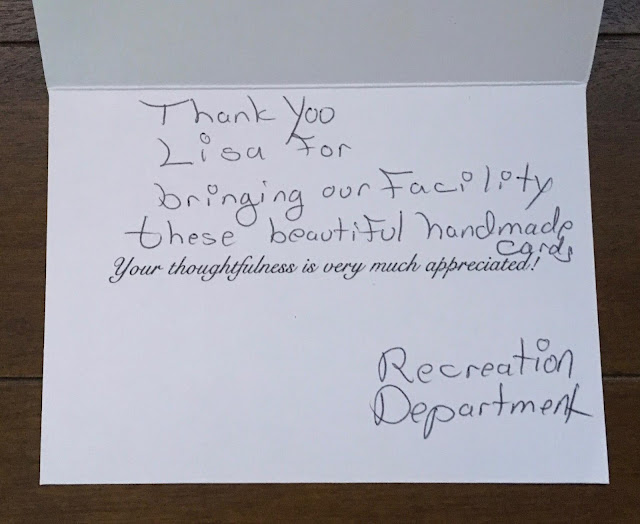 Thank Yoo
Lisa For
bringing our Facility
these beautiful handmade
cards
Your thoughtfulness is very much appreciated!
Recreation
Department